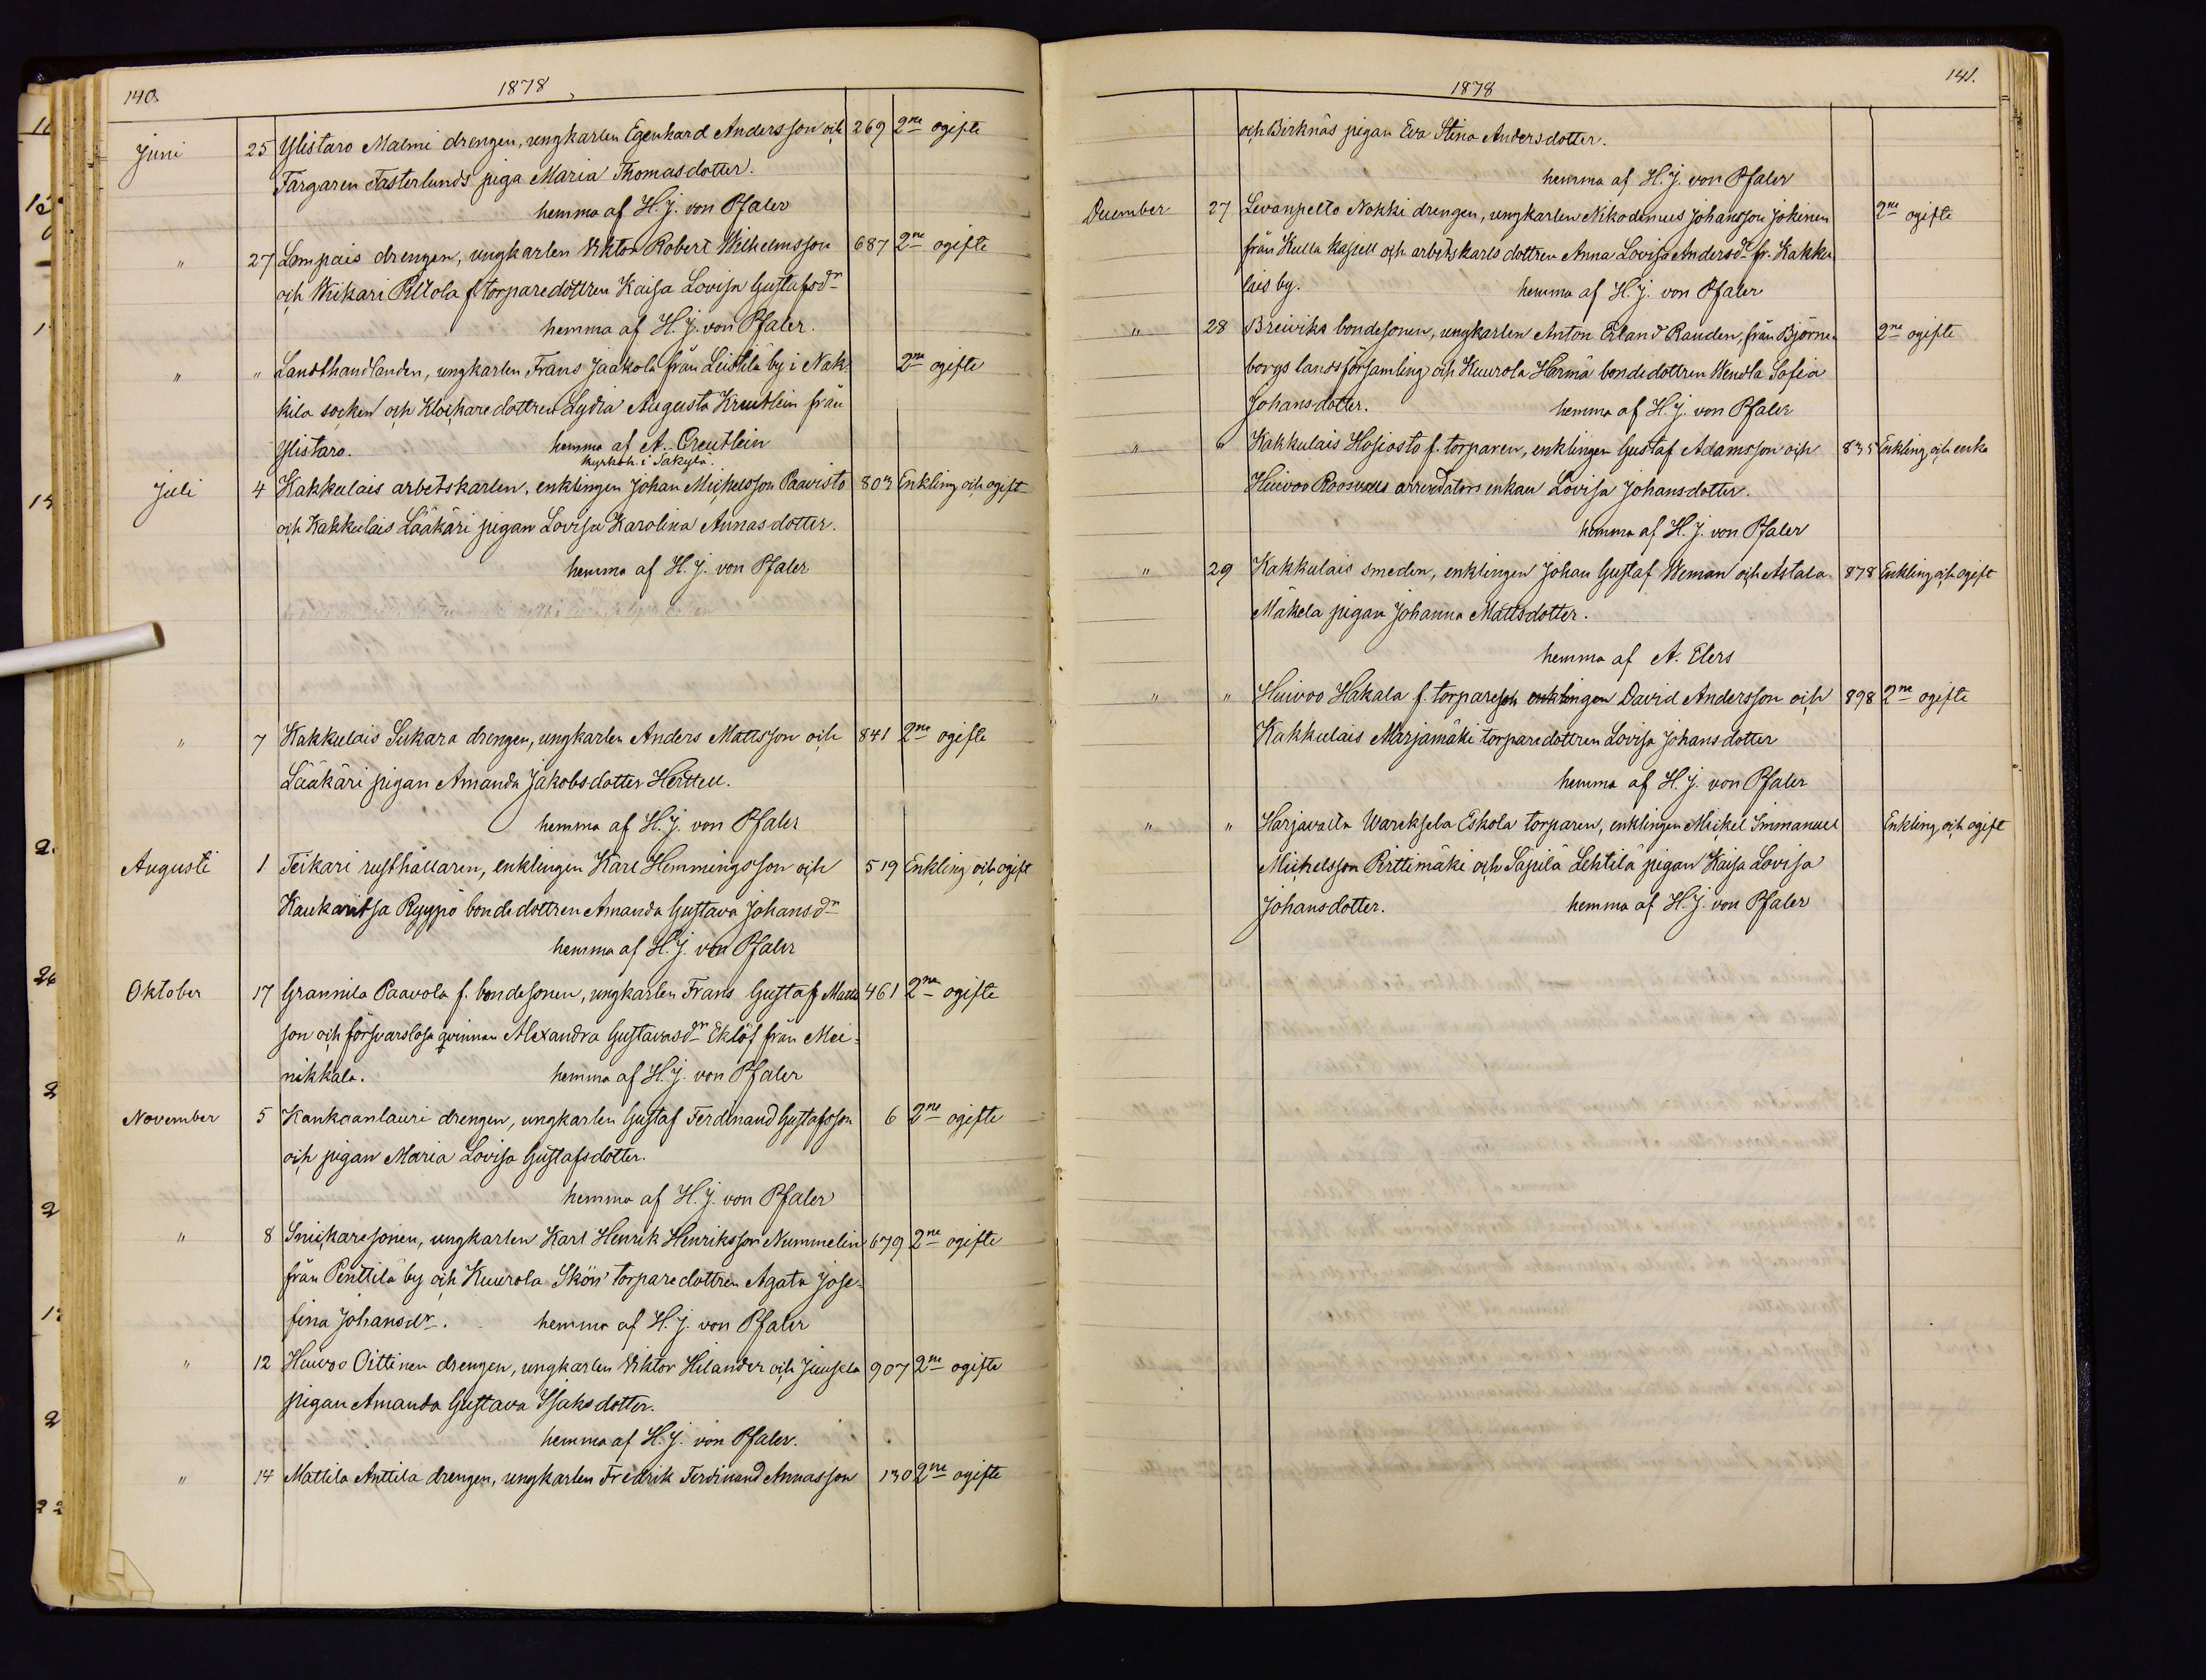 140.
1878
Juni 25 Ylistaro Malmi drengen, ungkarlen Egenhard Andersson och 269 2ne ogifte
Färgaren Fasterlunds piga Maria Thomasdotter.
hemma af H. J. von Pfaler
" 27 Lampais drengen, ungkarlen Viktor Robert Wilhelmsson 687 2ne ogifte
och Wiikari Peltola f torparedottren Kaisa Lovisa Gustafsdr
hemma af H. J. von Pfaler.
" " Landthandlanden, ungkarlen Frans Jaakola från Leistilä by i Nak- 2ne ogifte
kila socken och Klockaredottren Lydia Augusta Kreutlein från
Ylistaro. hemma af A. Creutlein
kyrkoh. i Säkylä.
Juli 4 Kakkulais arbetskarlen, enklingen Johan Michelsson Paavisto 803 Enkling och ogift
och Kakkulais Lääkäri pigan Lovisa Karolina Annasdotter.
hemma af H. J. von Pfaler
" 7 Kakkulais Sukara drengen, ungkarlen Anders Mattsson och 841 2ne ogifte
Lääkäri pigan Amanda Jakobsdotter Hertteu.
hemma af H. J. von Pfaler
Augusti 1 Teikari rusthållaren, enklingen Karl Hemmingsson och 519 Enkling och ogift
Kaukaritsa Ryypö bondedottren Amanda Gustava Johansdr
hemma af H. J. von Pfaler
Oktober 17 Grannila Paavola f. bondesonen, ungkarlen Frans Gustaf Matts 461 2ne ogifte
son och försvarslösa qvinnan Alexandra Gustavasdr Eklöf från Mei-
nikkala. hemma af H. J. von Pfaler
November 5 Kankaanlauri drengen, ungkarlen Gustaf Ferdinand Gustafsson 6 2ne ogifte
och pigan Maria Lovisa Gustafsdotter.
hemma af H. J. von Pfaler
" 8 Snickaresonen, ungkarlen Karl Henrik Henriksson Nummelin 679 2ne ogifte
från Penttilä by och Kuurola Skön' torparedottren Agata Jose-
fina Johansdr. hemma af H. J. von Pfaler
" 12 Huivoo Oittinen drengen, ungkarlen Viktor Hilander och Juusela 907 2ne ogifte
pigan Amanda Gustava Isaksdotter.
hemma af H. J. von Pfaler.
" 14 Mattila Anttila drengen, ungkarlen Fredrik Ferdinand Annasson 130 2ne ogifte
141.
1878
och Birknäs pigan Eva Stina Andersdotter.
hemma af H. J. von Pfaler
December 27 Levanpelto Nokki drengen, ungkarlen Nikodemus Johansson Jokinen 2ne ogifte
från Kulla kapell och arbetskarls dottren Anna Lovisa Andersdr fr. Kakku
lais by. hemma af H. J. von Pfaler
" 28 Breiviks bondesonen, ungkarlen Anton Erland Randen, från Björne- 2ne ogifte
borgs landsförsamling och Kuurola Härmä bondedottren Wendla Sofia
Johansdotter. hemma af H. J. von Pfaler
" " Kakkulais Hosiosto f. torparen, enklingen Gustaf Adamsson och 835 Enkling och enka
Huivoo arrendators enkan Lovisa Johansdotter.
hemma af H. J. von Pfaler
" 29 Kakkulais smeden, enklingen Johan Gustaf Weman och Astala 878 Enkling och ogift
Mäkelä pigan Johanna Mattsdotter.
hemma af A. Elers
" " Huivoo Hakala f. torpareson enklingen David Andersson och 898 2ne ogifte
Kakkulais Marjamäki torparedottren Lovisa Johansdotter
hemma af H. J. von Pfaler
" " Harjavalta Wareksela Eskola torparen, enklingen Mickel Immanuel Enkling och ogift
Michelsson Pirttimäki och Sapilä Lehtilä pigan Kaisa Lovisa
Johansdotter. hemma af H. J. von Pfaler